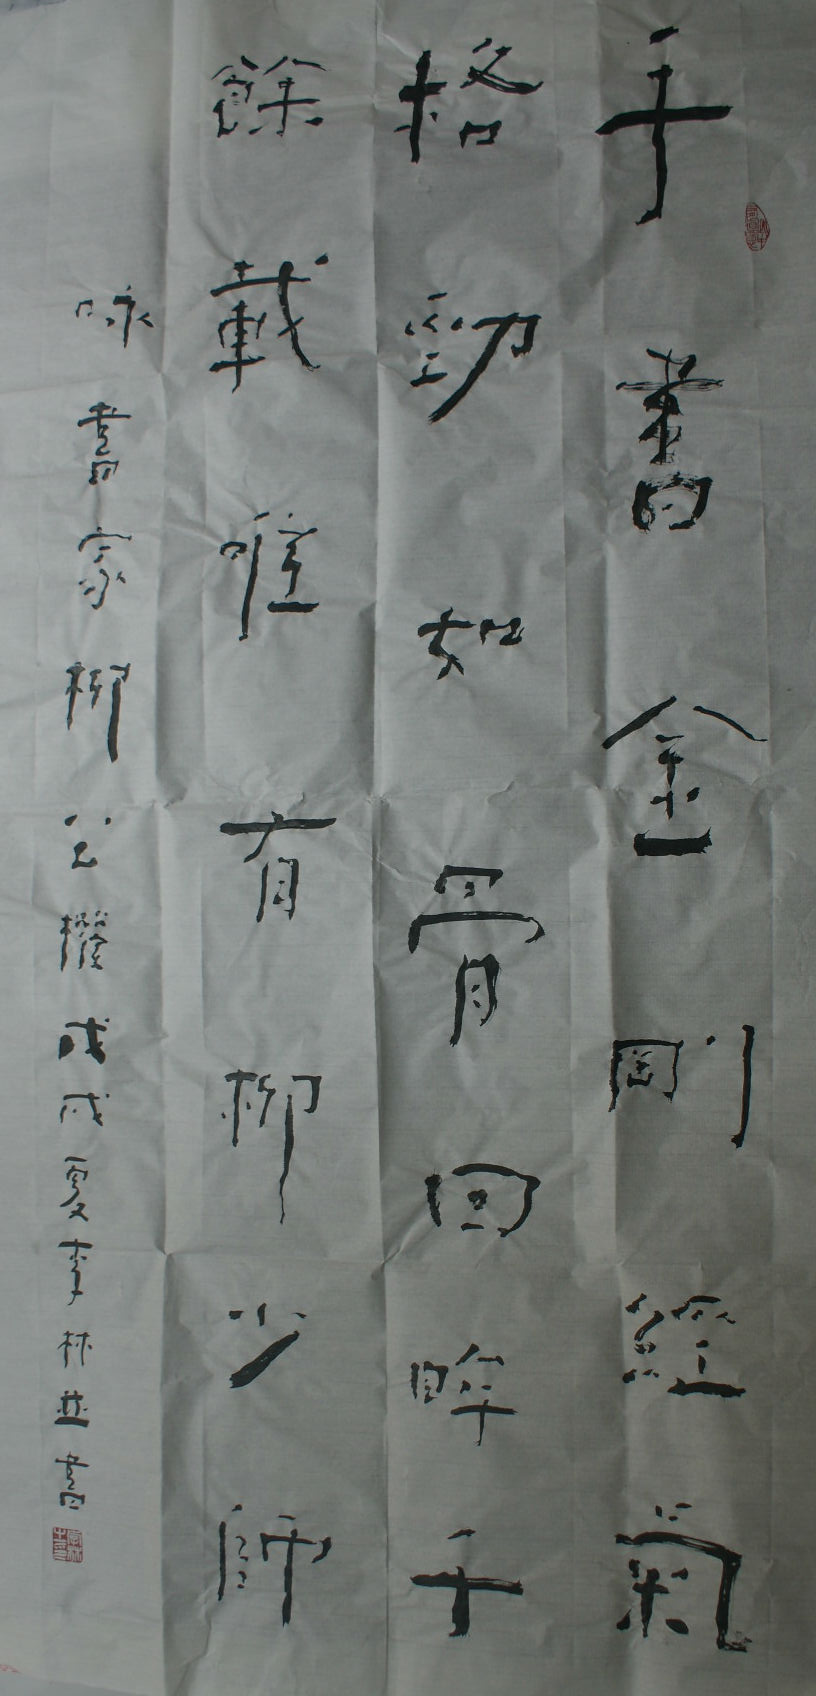 手書金剛經氣
格勁如骨回眸千
餘載唯有柳少師
咏書家柳公權戊戌夏李林並書